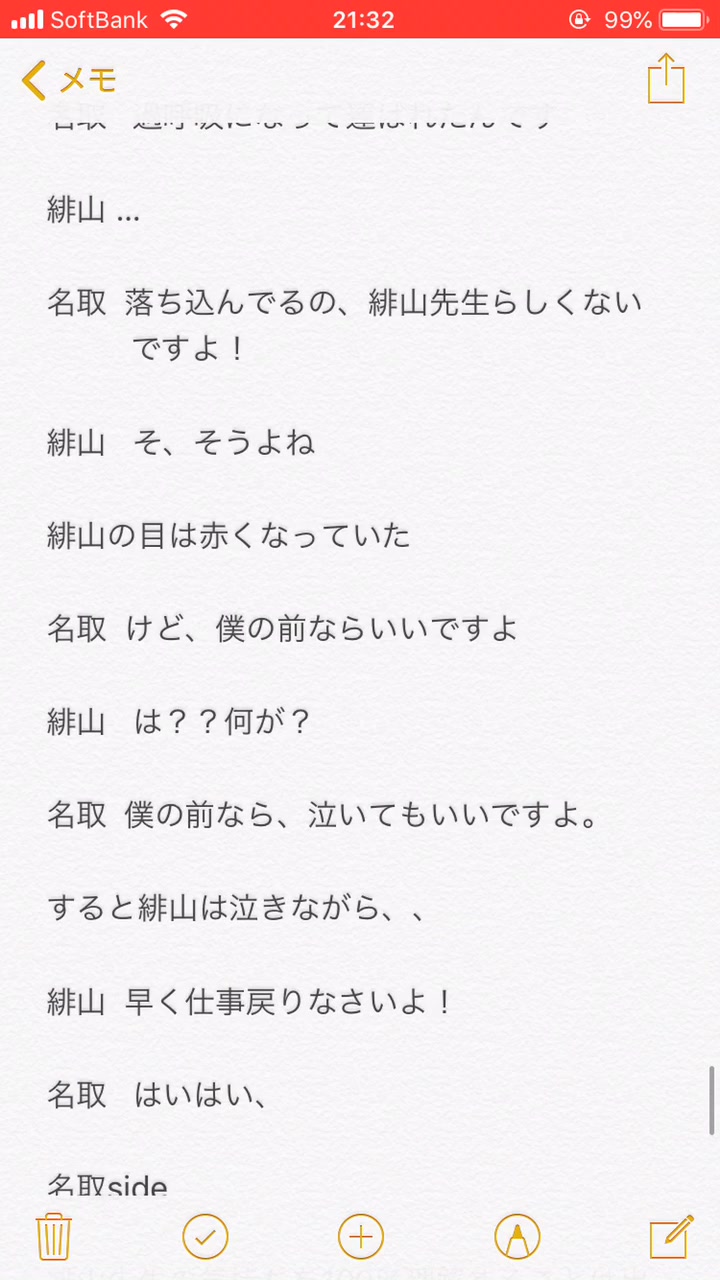 SoftBank 21:32 99%
メモ
名取 過呼吸になって運ばれたんです
緋山 …
名取 落ち込んでるの、緋山先生らしくない
ですよ！
緋山 そ、そうよね
緋山の目は赤くなっていた
名取 けど、僕の前ならいいですよ
緋山 は？？何が？
名取 僕の前なら、泣いてもいいですよ。
すると緋山は泣きながら、、
緋山 早く仕事戻りなさいよ！
名取 はいはい、
名取side